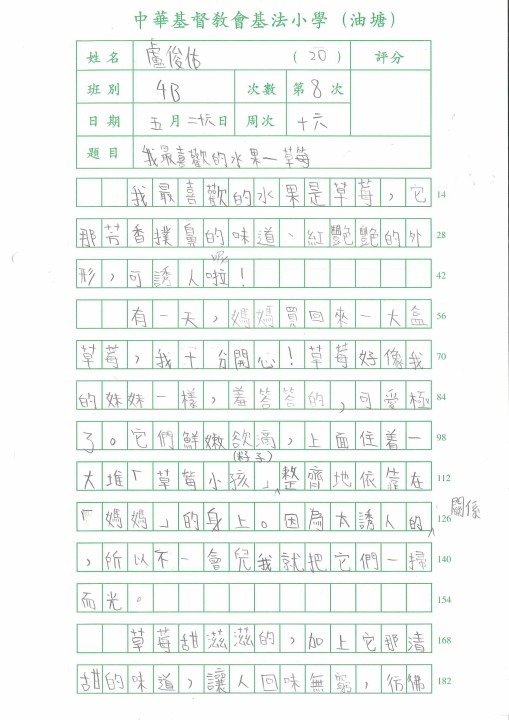 中華基督教會基法小學（油塘）
姓名 盧俊佑 （20） 評分
班別 4B 次數 第8次
日期 五月二十六日 周次 十六
題目 我最喜歡的水果—草莓
我最喜歡的水果是草莓，它 14
那芳香撲鼻的味道、紅艷艷的外 28
形，可誘人啦！ 42
有一天，媽媽買回來一大盒 56
草莓，我十分開心！草莓好像我 70
的妹妹一樣，羞答答的，可愛極 84
了。它們鮮嫩欲滴，上面住着一 98
(籽子)
大堆「草莓小孩」，整齊地依靠在 112
「媽媽」的身上。因為太誘人的 126
關係
，所以不一會兒我就把它們一掃 140
而光。 154
草莓甜滋滋的，加上它那清 168
甜的味道，讓人回味無窮，彷彿 182